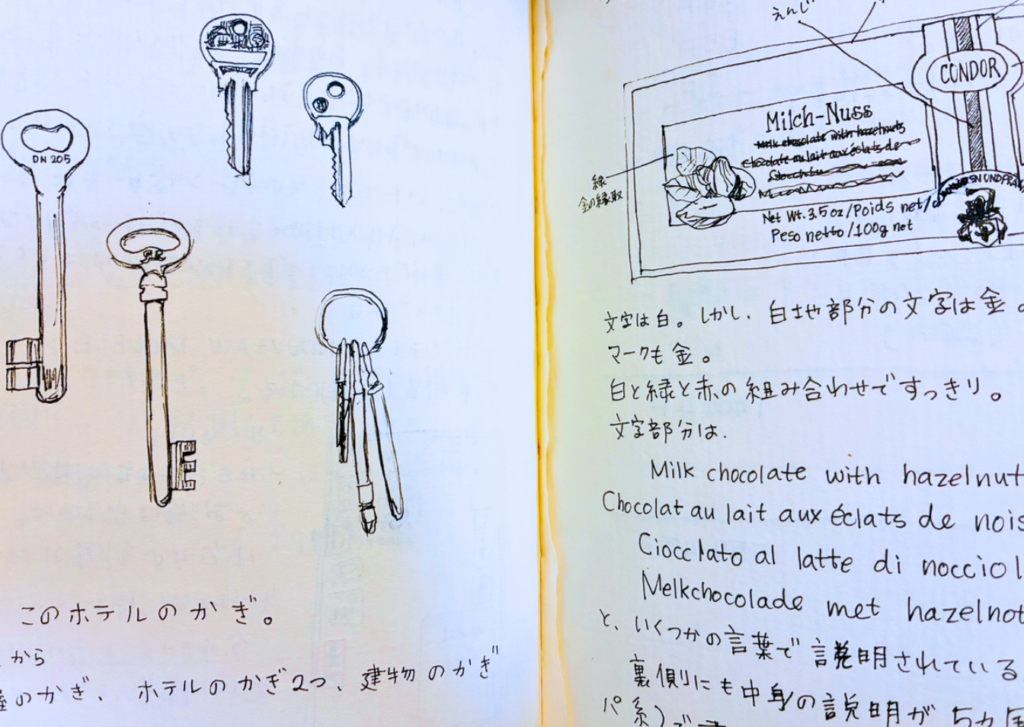 DN 205
このホテルのかぎ。
から
のかぎ、ホテルのかぎ2つ、建物のかぎ
えんじ
CONDOR
Milch-Nuss
Milk chocolate with hazelnuts
Chocolate au lait aux éclats de
緑
金の縁取
Net Wt. 3.5oz/Poids net/
Peso netto/100g net
文字は白。しかし、白地部分の文字は金。
マークも金。
白と緑と赤の組み合わせですっきり。
文字部分は、
Milk chocolate with hazelnut
Chocolat au lait aux éclats de nois
Cioccolato al latte di nocciol
Melkchocolade met hazelnot
と、いくつかの言葉で説明されている
裏側にも中身の説明が5ヵ国
パ系)で